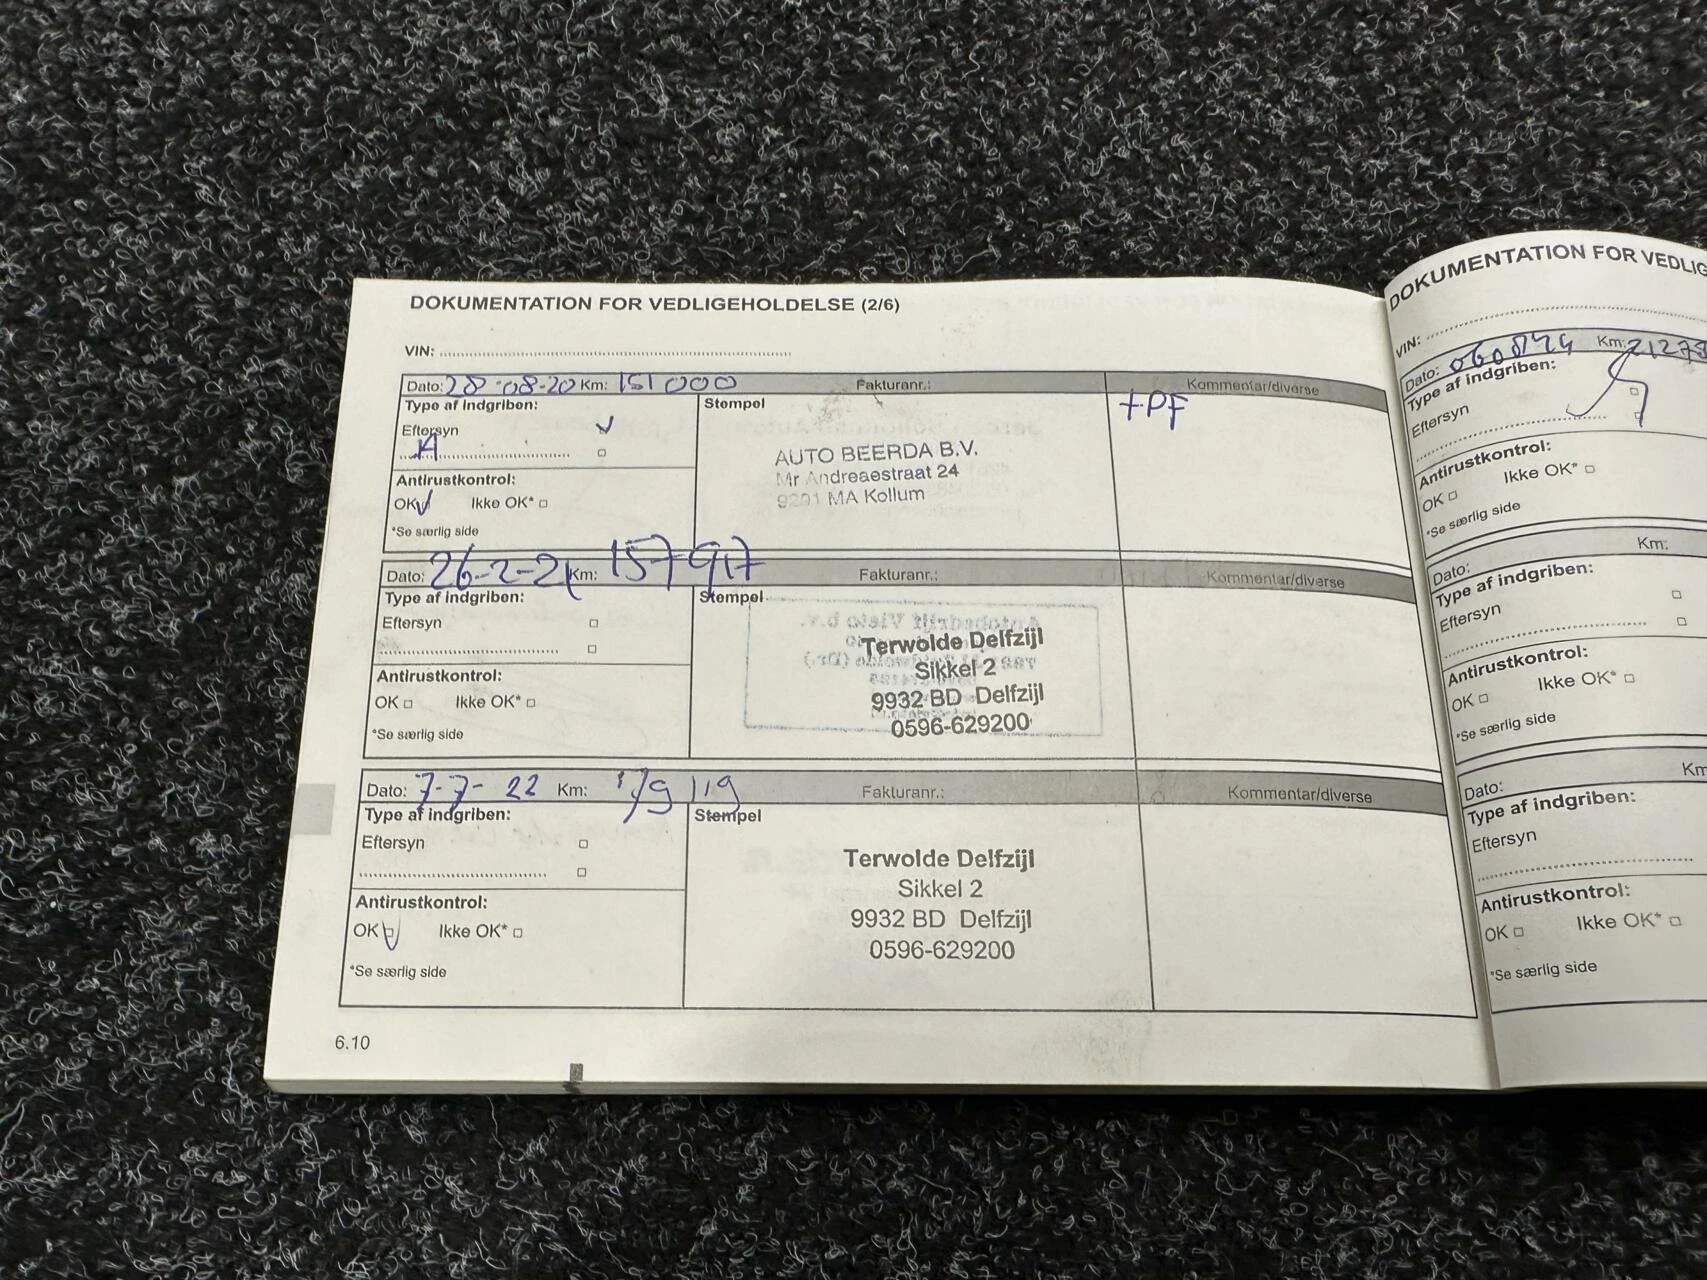 DOKUMENTATION FOR VEDLIGEHOLDELSE (2/6)
VIN:
Dato: 28-08-20 Km: 151000 Fakturanr.: Kommentar/diverse
Type af indgriben: Stempel +PF
Eftersyn
A
AUTO BEERDA B.V.
Mr Andreaestraat 24
9291 MA Kollum
Antirustkontrol:
OK Ikke OK*
*Se særlig side
Dato: 26-2-21 Km: 157917 Fakturanr.: Kommentar/diverse
Type af indgriben: Stempel
Eftersyn
Terwolde Delfzijl
Sikkel 2
9932 BD Delfzijl
0596-629200
Antirustkontrol:
OK Ikke OK*
*Se særlig side
Dato: 7-7-22 Km: 179119 Fakturanr.: Kommentar/diverse
Type af indgriben: Stempel
Eftersyn
Terwolde Delfzijl
Sikkel 2
9932 BD Delfzijl
0596-629200
Antirustkontrol:
OK Ikke OK*
*Se særlig side
6.10
DOKUMENTATION FOR VEDLIG
VIN:
Dato: Km:
Type af indgriben:
Eftersyn
Antirustkontrol:
OK Ikke OK*
*Se særlig side
Dato: Km:
Type af indgriben:
Eftersyn
Antirustkontrol:
OK Ikke OK*
*Se særlig side
Dato: Km
Type af indgriben:
Eftersyn
Antirustkontrol:
OK Ikke OK*
*Se særlig side